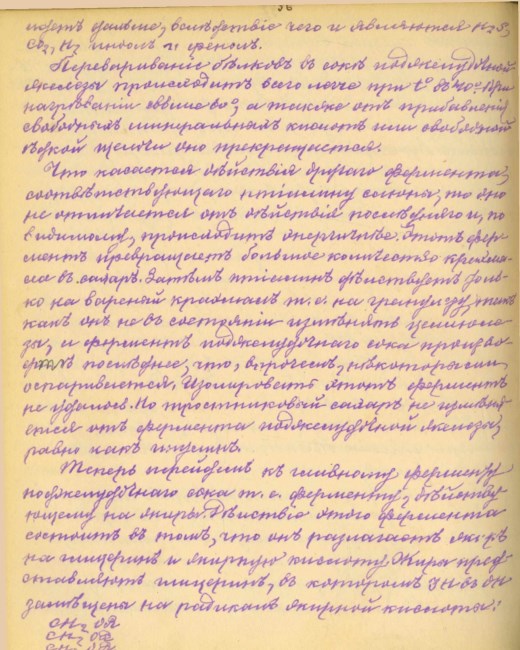 36
идетъ дальше, вслѣдствіе чего и являются H2S,
CO2, H2 индолъ и фенолъ.
Перевариваніе бѣлковъ въ сокѣ поджелудочной
железы происходитъ всего легче при t° въ 40°. При
нагрѣваніи свыше 60°, а также отъ прибавленія
свободныхъ минеральныхъ кислотъ или свободной
ѣдкой щелочи оно прекращается.
Что касается дѣйствія другаго фермента,
соотвѣтствующаго птіалину слюны, то оно
не отличается отъ дѣйствія послѣдняго и, по
видимому, происходитъ энергичнѣе. Этотъ фер-
ментъ превращаетъ большое количество крахма-
ла въ сахаръ. Затѣмъ птіалинъ дѣйствуетъ толь-
ко на вареный крахмалъ т. е. на гранулезу, такъ
какъ онъ не въ состояніи измѣнять целлюло-
зу, и ферментъ поджелудочнаго сока произво-
дитъ послѣднее, что, впрочемъ, нѣкоторыми
оспаривается. Изолировать этотъ ферментъ
не удалось. Но тростниковый сахаръ не измѣня-
ется отъ фермента поджелудочной железы,
равно какъ инулинъ.
Теперь перейдемъ къ главному ферменту
поджелудочнаго сока т. е. ферменту, дѣйству-
ющему на жиры. Дѣйствіе этого фермента
состоитъ въ томъ, что онъ разлагаетъ жиръ
на глицеринъ и жирную кислоту. Жиры пред-
ставляютъ глицеринъ, въ которомъ 3 H въ OH
замѣщены на радикалъ жирной кислоты:
CH2 OR
CH2 OR
CH2 OR